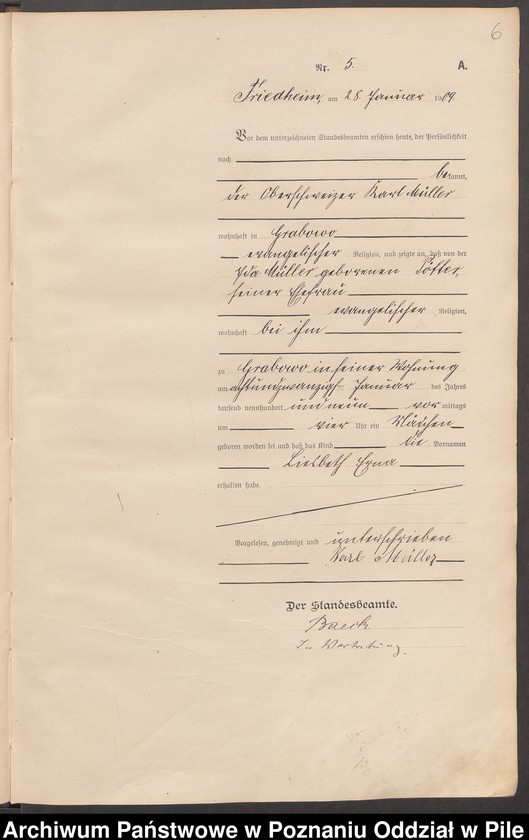 6
Nr. 5. A.
Friedheim, am 28. Januar 1909.
Vor dem unterzeichneten Standesbeamten erschien heute, der Persönlichkeit
nach
bekannt,
der Oberschweizer Karl Müller
wohnhaft in Grabowo
evangelischer Religion, und zeigte an, daß von der
Ida Müller geborenen
seiner Ehefrau
evangelischer Religion,
wohnhaft bei ihm
zu Grabowo in seiner Wohnung
am achtundzwanzigsten Januar des Jahres
tausend neunhundert und neun vormittags
um vier Uhr ein Mädchen
geboren worden sei und daß das Kind die Vornamen
Liesbeth Erna
erhalten habe.
Vorgelesen, genehmigt und unterschrieben
Karl Müller
Der Standesbeamte.
Baeck
In Vertretung.
Archiwum Państwowe w Poznaniu Oddział w Pile